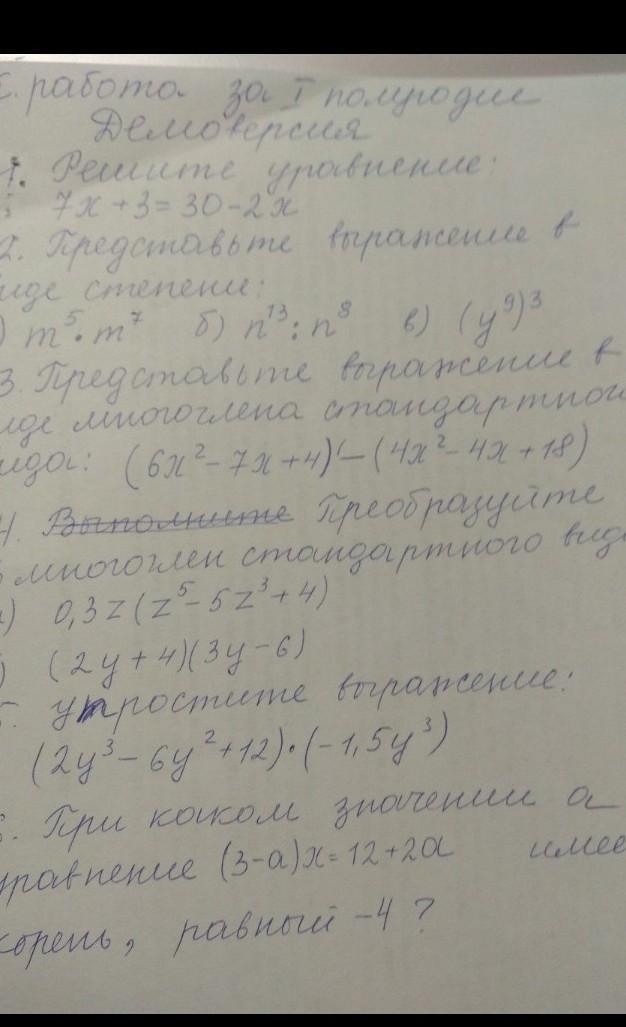 К. работа за I полугодие
Демоверсия
1. Решите уравнение:
7x + 3 = 30 - 2x
2. Представьте выражение в
виде степени:
) m⁵ · m⁷ б) n¹³ : n⁸ в) (y⁹)³
3. Представьте выражение в
иде многочлена стандартного
ида: (6x² - 7x + 4) - (4x² - 4x + 18)
4. ~~Выполните~~ Преобразуйте
в многочлен стандартного вида
а) 0,3z(z⁵ - 5z³ + 4)
) (2y + 4)(3y - 6)
5. Упростите выражение:
(2y³ - 6y² + 12) · (-1,5y³)
6. При каком значении a
уравнение (3-a)x = 12 + 2a имее
корень, равный -4 ?